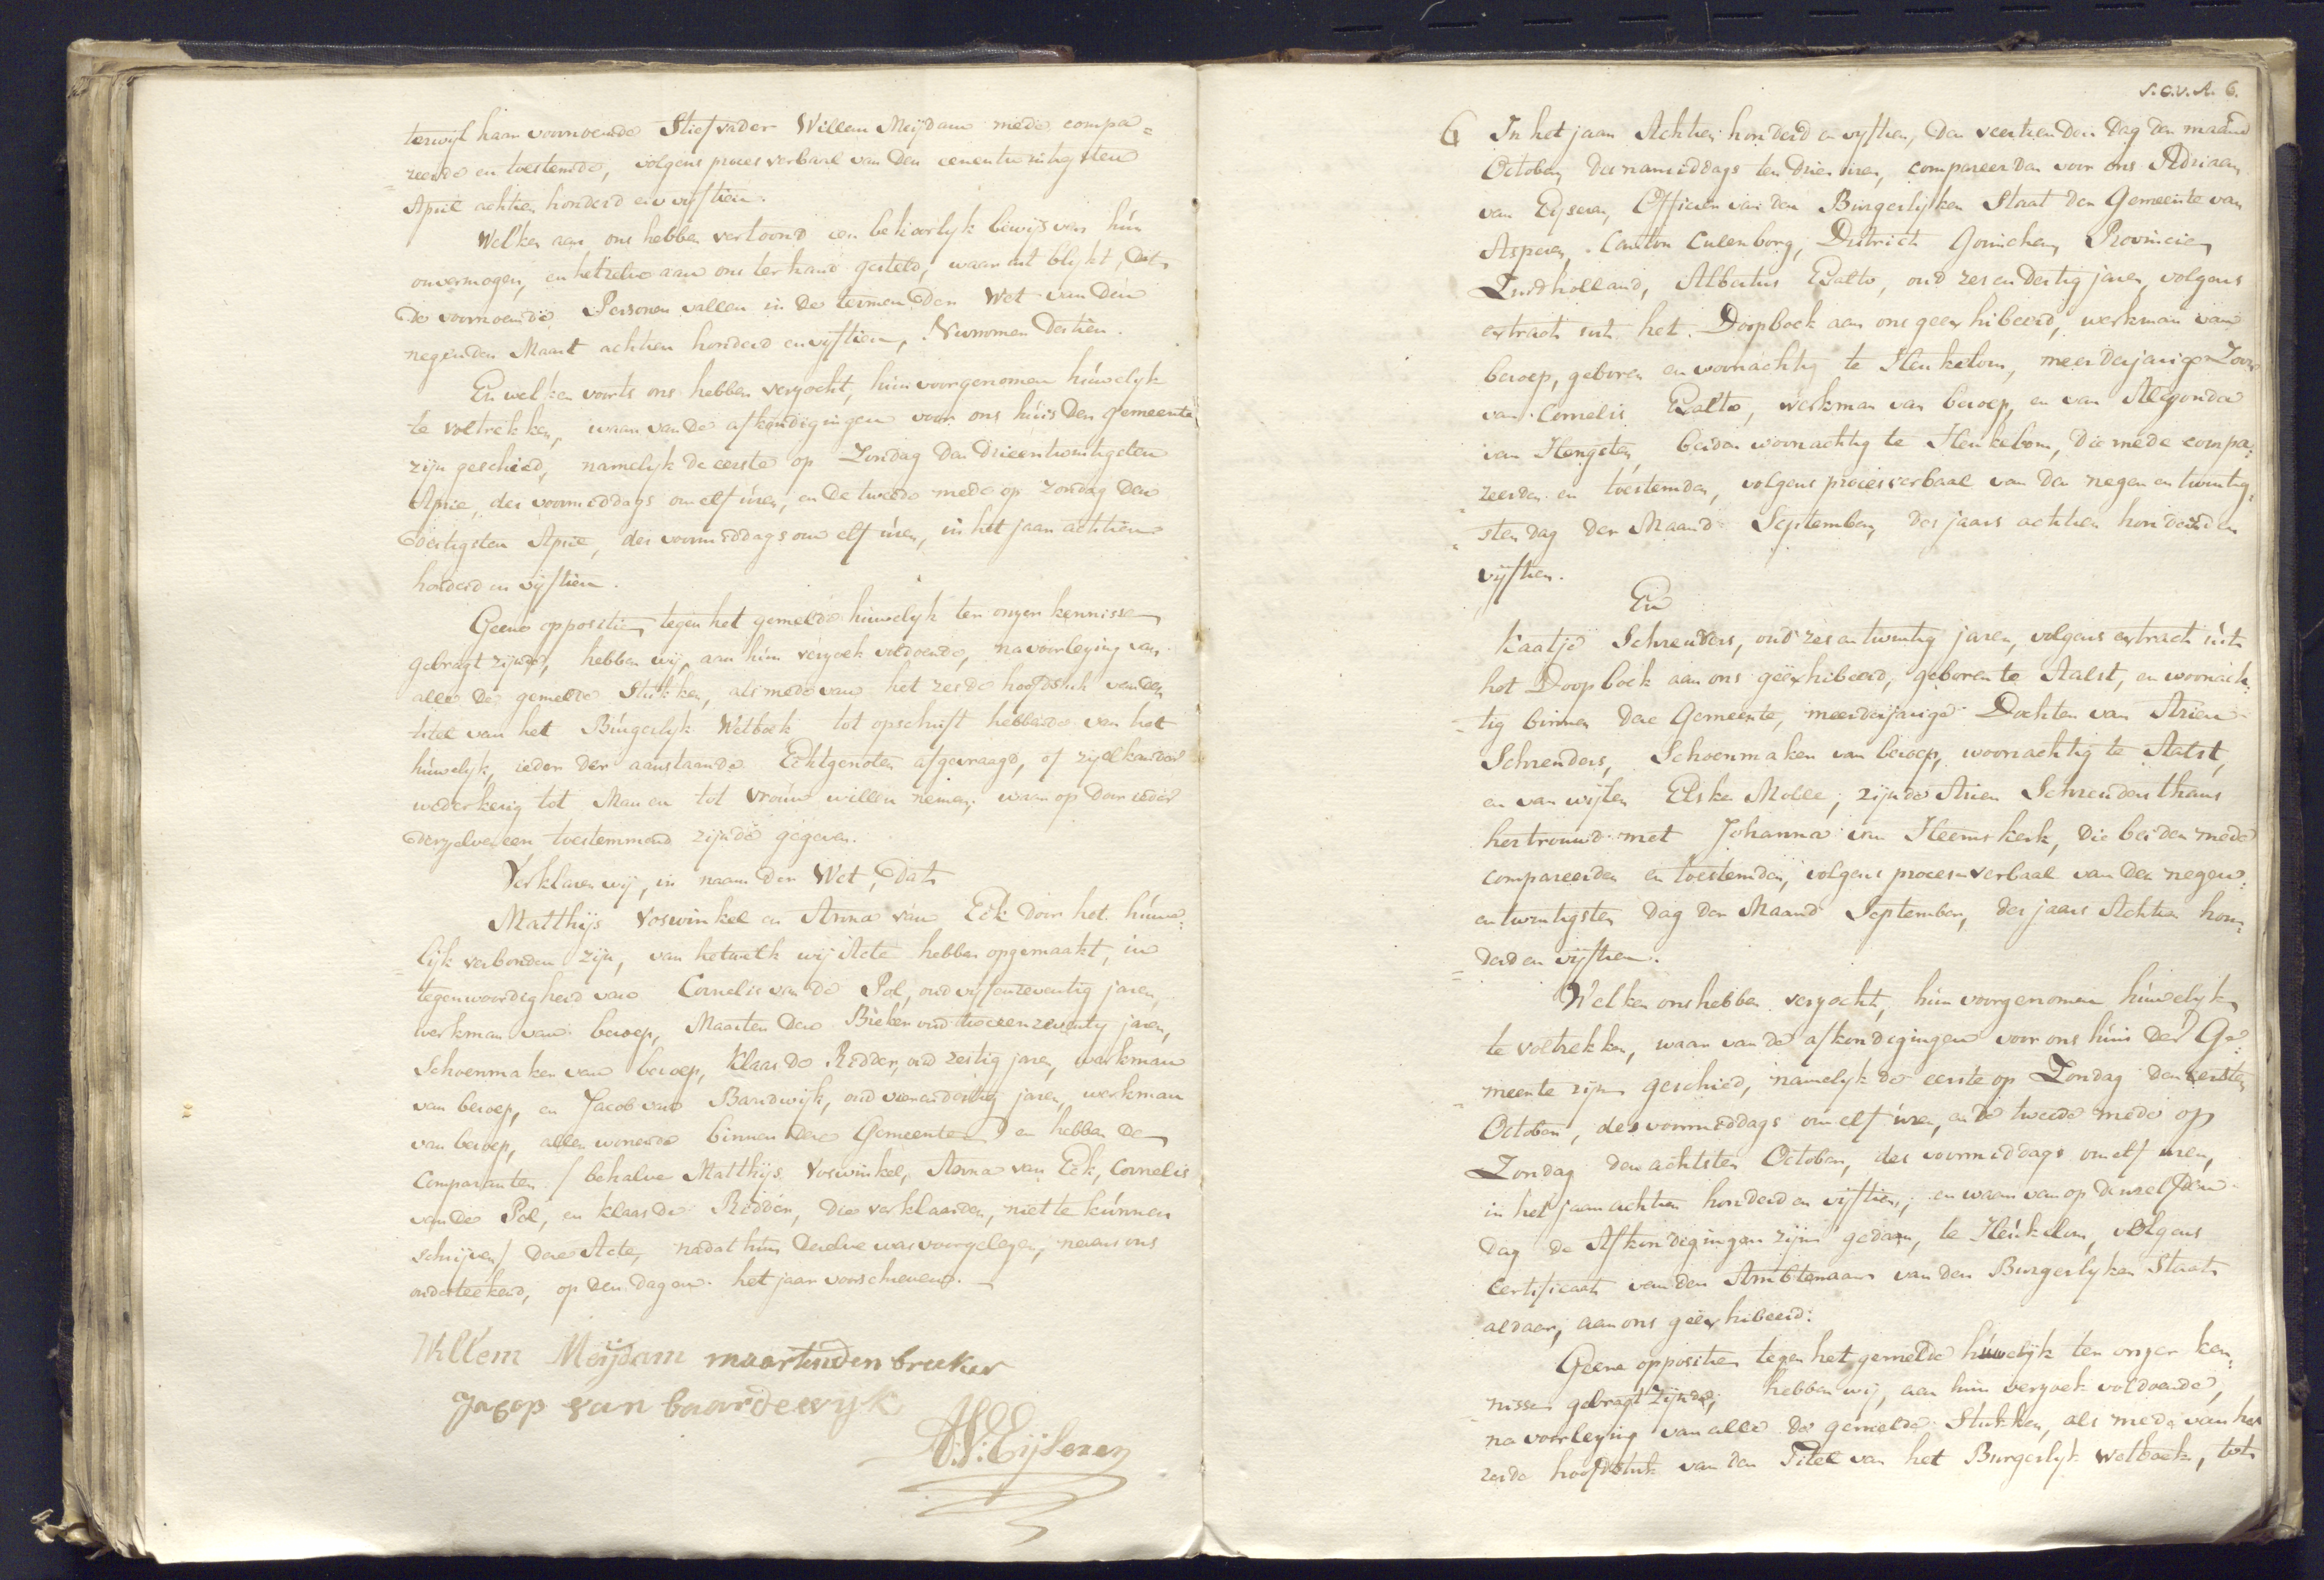 terwijl haar voornoemde Stiefvader Willem Meijdam mede compa=
=reerde en toestemde, volgens proces verbaal van den eenentwintigsten
April achtien honderd en vijftien.
Welken aan ons hebben vertoond een behoorlyk bewijs van hún
onvermogen, en hetzelve aan ons ter hand gesteld, waar uit blykt, dat
de voornoemde Personen vallen in de termen der Wet van den
negenden Maart achtien honderd en vyftien, Numomer dertien.
En welken voorts ons hebben verzocht, hún voorgenomen húwelyk
te voltrekken, waar van de afkondigingen voor ons húis der gemeente
zijn geschied, namelyk de eerste op Zondag den drieentwintigsten
April, des voormiddags om elf úren, en de tweede mede op zondag den
dertigsten April, des voormiddags om elf úren, in het jaar achtien
honderd en vijftien.
Geene oppositien tegen het gemelde húwelyk ter onzer kennisse
gebragt zijnde, hebben wij, aan hún verzoek voldoende, na voorlezing van
alle de gemelde Stukken, als mede van het zesde hoofdstuk van den
titel van het Búrgerlyk Wetboek tot opschrift hebbende van het
húwelyk, ieder der aanstaande Echtgenoten afgevraagd, of zij elkander
wederkerig tot Man en tot Vroúw willen nemen; waar op door ieder
derzelven een toestemmend zijnde gegeven.
Verklaren wij, in naam der Wet, dat
Matthijs Voswinkel en Anna van Eck door het húwe=
=lijk verbonden zijn, van hetwelk wij Acte hebben opgemaakt, in
tegenwoordigheid van Cornelis van de Pol, oud vijfenzeventig jaren,
werkman van beroep, Maarten den Bieker oud tweeenzeventig jaren,
Schoenmaker van beroep, Klaas de Ridder, oud zestig jaren, werkman
van beroep, en Jacob van Bardwijk, oud vierendertig jaren, werkman
van beroep, allen wonende binnen deze Gemeente, en hebben de
Comparanten / behalve Matthijs Voswinkel, Anna van Eck, Cornelis
van de Pol, en Klaas de Ridder, die verklaarden, niet te kúnnen
schrijven / deze Acte, nadat hún dezelve was voorgelezen, nevens ons
onderteekend, op den dag en het jaar voorschreven.
Willem Meijdam maartinden breeker
Jacop van baardewijk
A.V. Eijseren
S.C.V.A. 6.
6 In het jaar Achtien honderd en vyftien, den veertienden dag der maand
October, des namiddags ten drie uren, compareerden voor ons Adriaan
van Eyseren, Officier van den Burgerlijken Staat der Gemeente van
Asperen, Canton Culenborg, District Gorinchem, Provincie
Zuidholland, Albertus Exalto, oud zes en dertig jaren, volgens
extract uit het Doopboek aan ons geexhibeerd, werkman van
beroep, geboren en woonachtig te Heukelom, meerderjarige Zoon
van Cornelis Exalto, werkman van beroep, en van Aldegonda
van Hengsten, beiden woonachtig te Heukelom, die mede compa=
reerden en toestemden, volgens proces verbaal van den negen en twintig=
=sten dag der Maand September, des jaars achtien honderd en
vijftien.
En
Kaatje Schreuders, oud zes en twintig jaren, volgens extract uit
het Doopboek aan ons geëxhibeerd, geboren te Aalst, en woonach=
=tig binnen deze Gemeente, meerderjarige Dochter van Arien
Schreuders, Schoenmaker van beroep, woonachtig te Aalst,
en van wijlen Elske Molle; zijnde Arien Schreuders thans
hertrouwd met Johanna van Heemskerk, die beiden mede
compareerden en toestemden, volgens proces verbaal van den negen=
entwintigsten dag der Maand September, des jaars Achtien hon=
=derd en vijftien.
Welken ons hebben verzocht, hún voorgenomen húwelyk
te voltrekken, waar van de afkondigingen voor ons húis der Ge=
=meente zijn geschied, namelyk de eerste op Zondag den eersten
October, des voormiddags om elf úren, en de tweede mede op
Zondag den achtsten October, des voormiddags om elf uren,
in het jaar achtien honderd en vijftien; en waar van op denzelfden
dag de Afkondigingen zijn gedaan, te Heúkelom, volgens
Certificaat van den Ambtenaar van den Burgerlyken Staat
aldaar, aan ons geëxhibeerd.
Geene oppositien tegen het gemelde húwelijk ter onzer ken=
=nisse gebragt zijnde, hebben wij, aan hún verzoek voldoende,
na voorlezing van alle de gemelde Stukken, als mede van het
zesde hoofdstuk van den Titel van het Burgerlyk Wetboek, tot